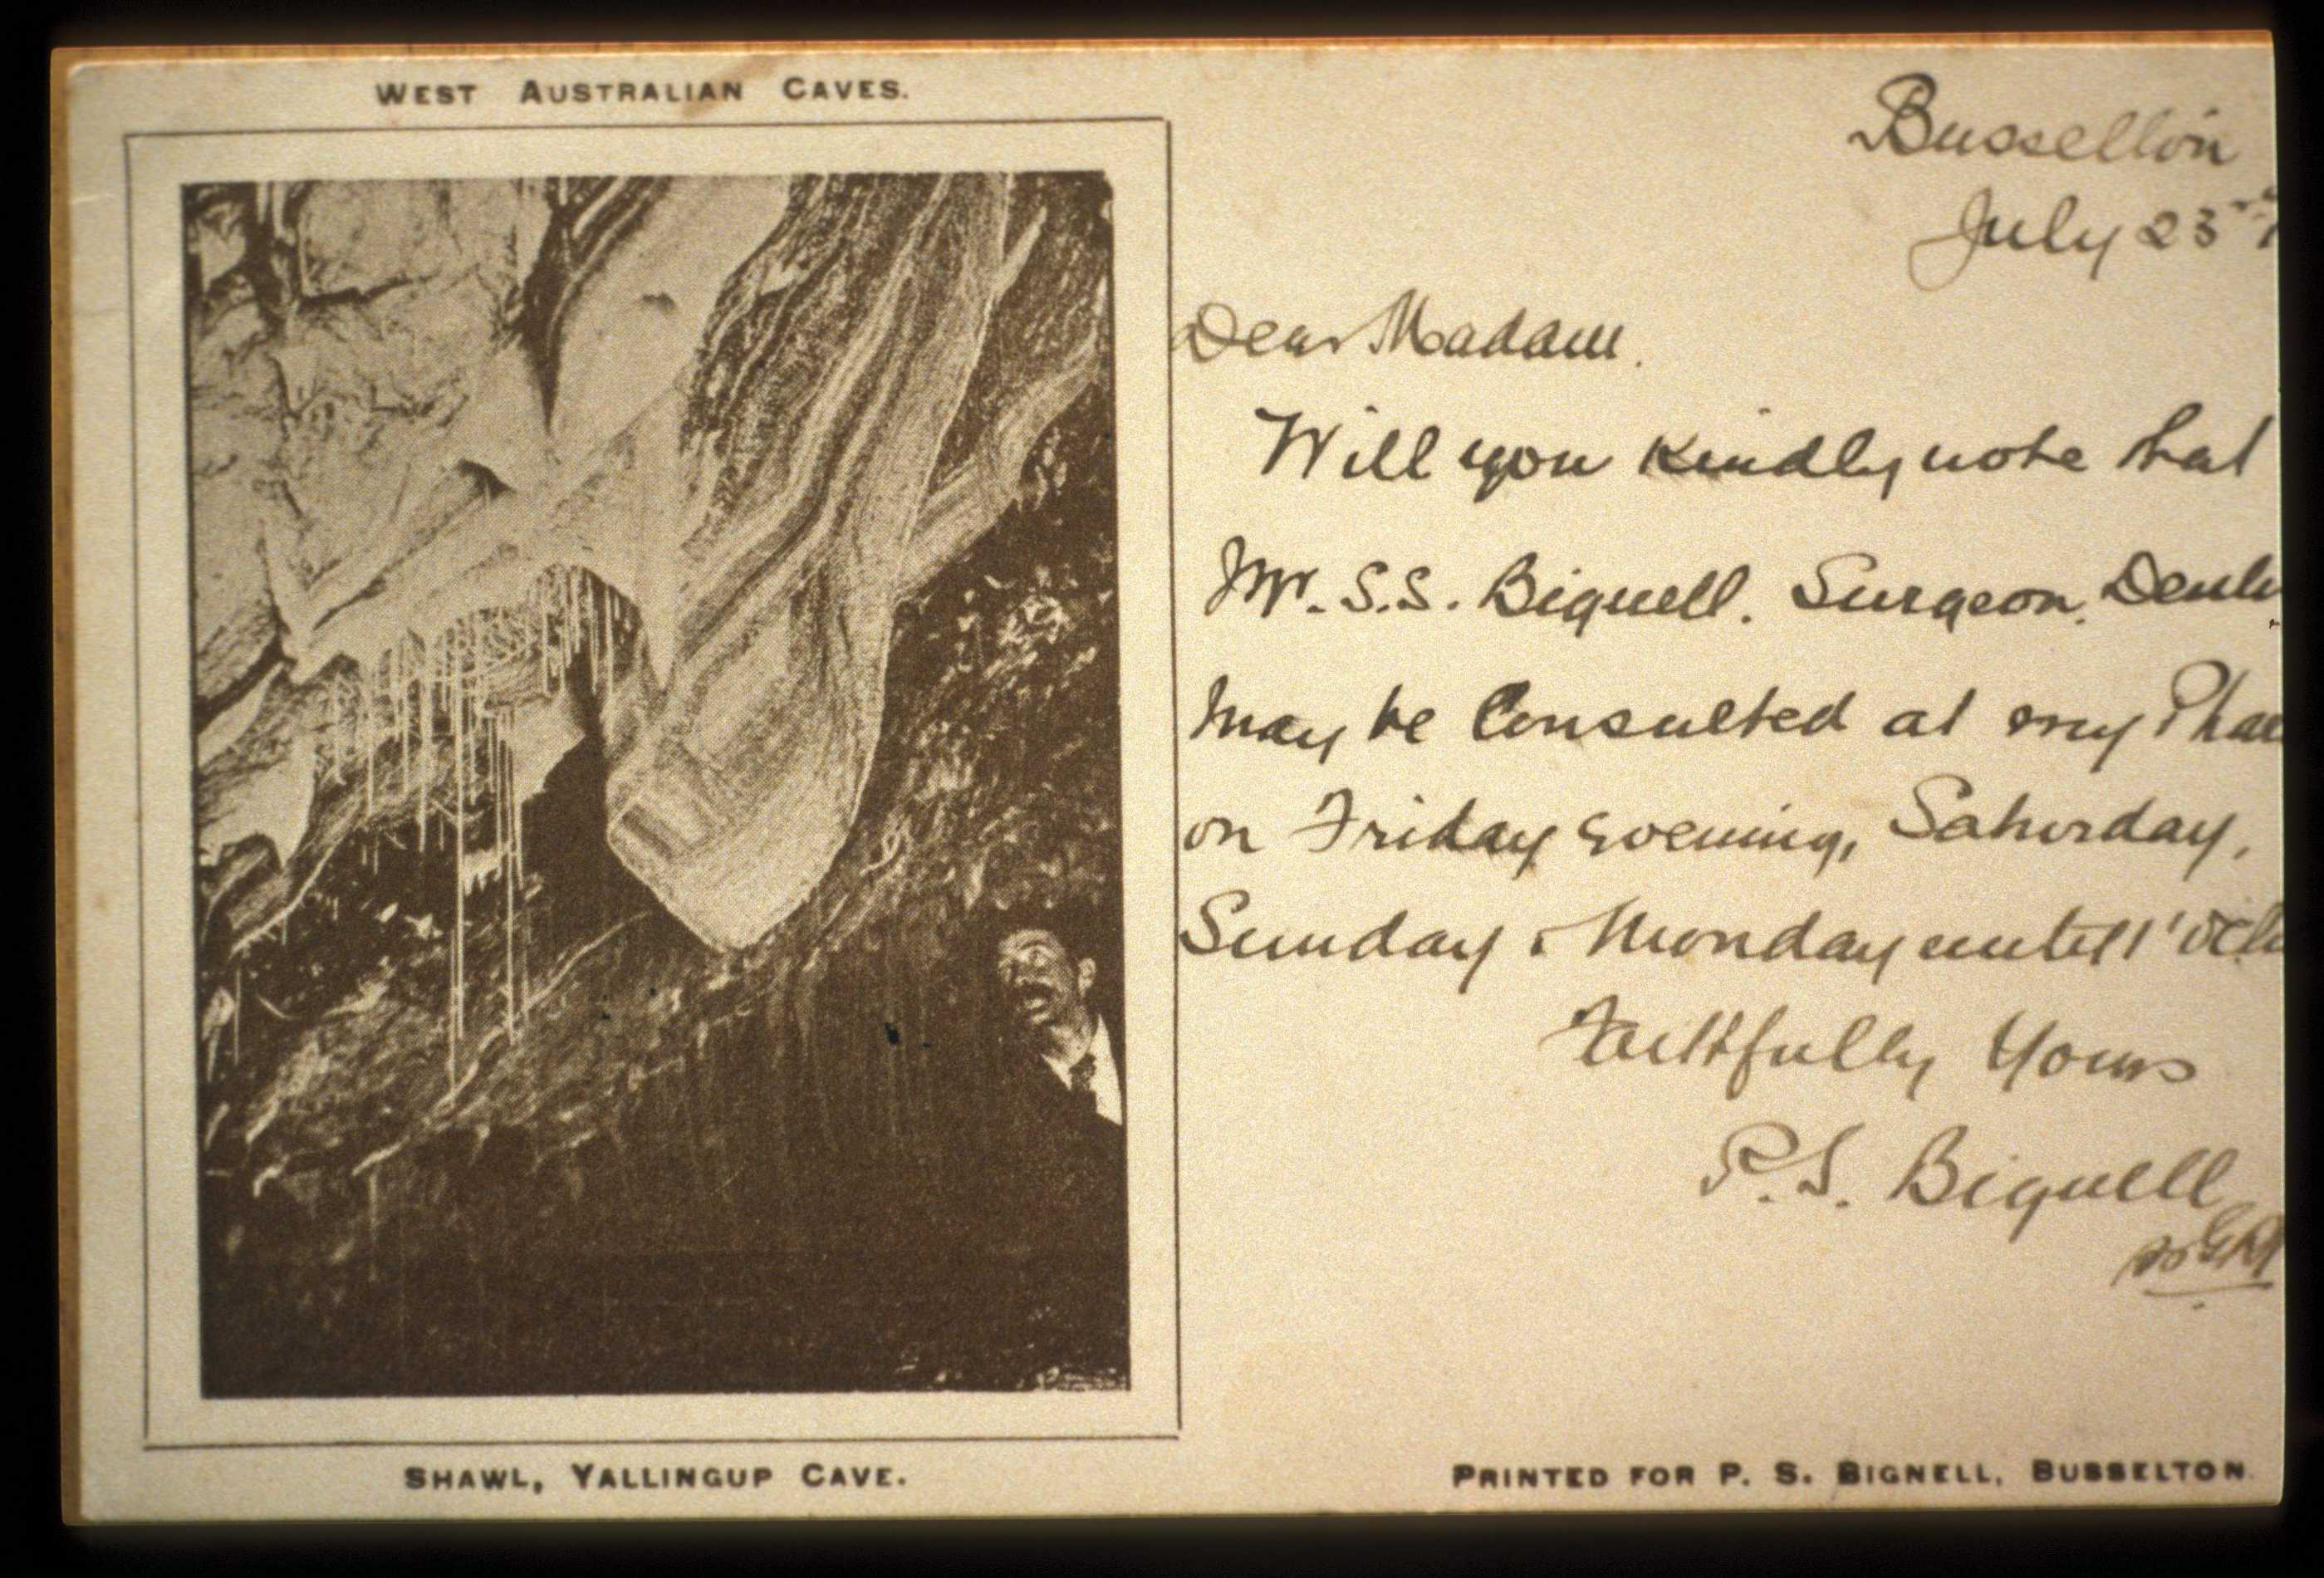 WEST AUSTRALIAN CAVES.
Busselton
July 23rd
Dear Madam.
Will you kindly note that
Mr. S.S. Bignell. Surgeon. Dentis
may be Consulted at my Phar
on Friday evening, Saturday,
Sunday & Monday until 1 'oclo
Faithfully Yours
P.S. Bignell
SHAWL, YALLINGUP CAVE.
PRINTED FOR P. S. BIGNELL, BUSSELTON.